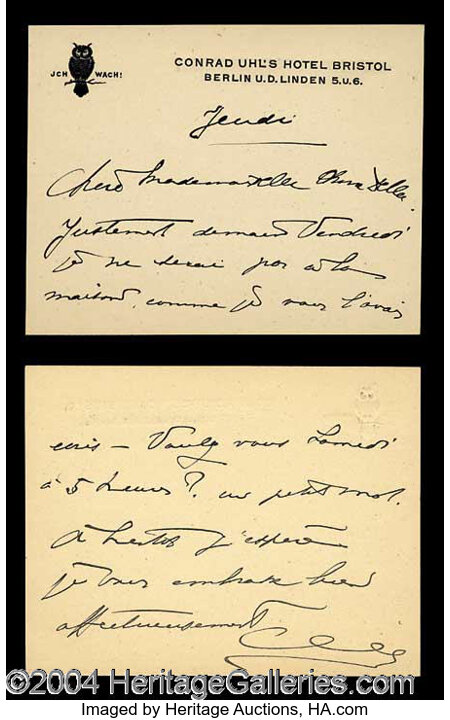 JCH WACH!
CONRAD UHL'S HOTEL BRISTOL
BERLIN U.D. LINDEN 5.U.6.
Jeudi
Chère Mademoiselle
Justement demain Vendredi
je ne serai pas à la
maison, comme je vous l'avais
écris – Voulez vous Samedi
à 5 heures? un petit mot.
A bientôt j'espère
je vous embrasse bien
affectueusement
©2004 HeritageGalleries.com
Imaged by Heritage Auctions, HA.com